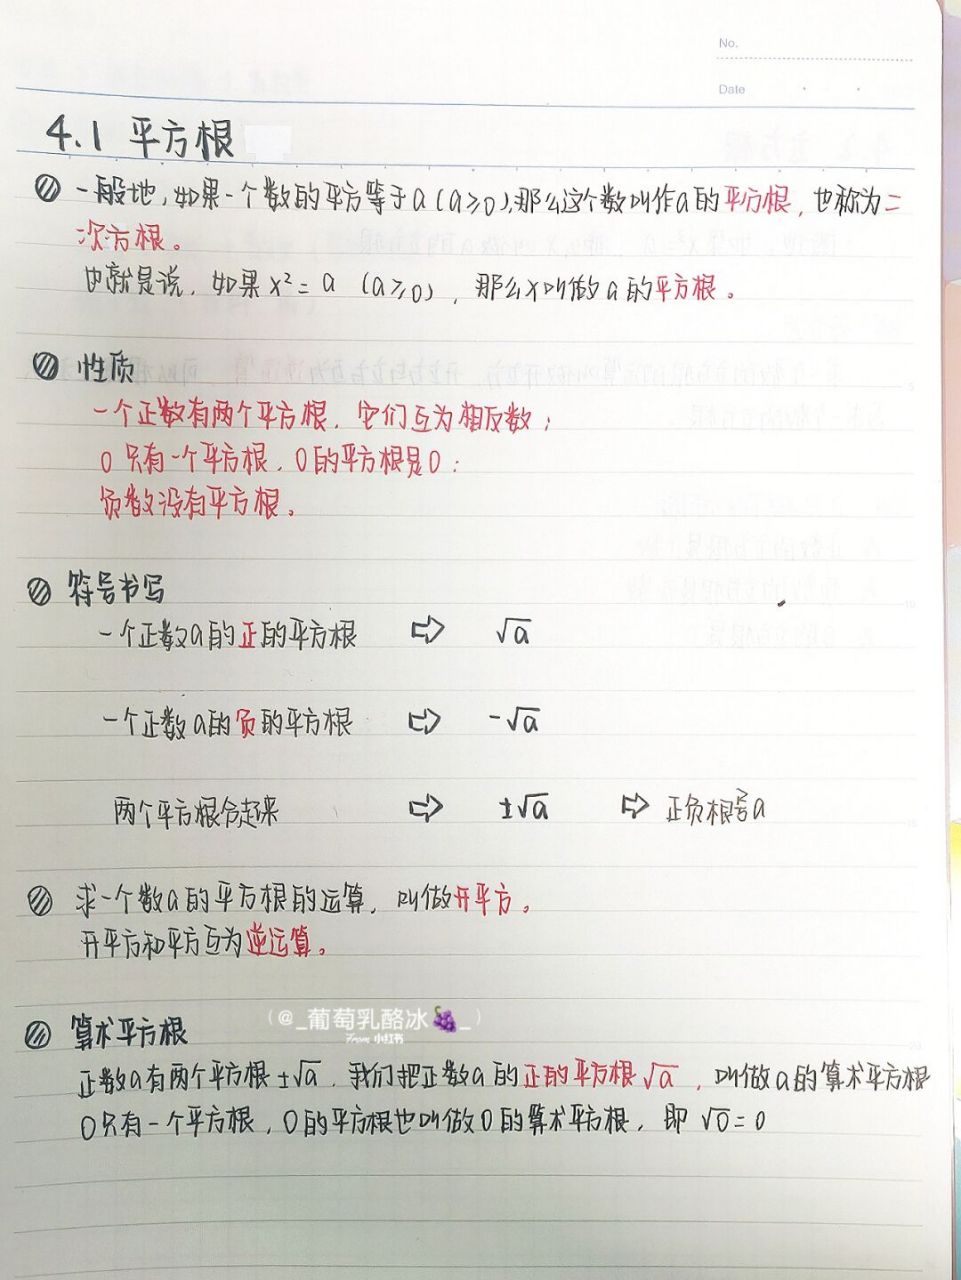 No.
Date
4.1 平方根
一般地,如果一个数的平方等于a(a≥0),那么这个数叫作a的平方根,也称为二
次方根。
也就是说,如果x²=a (a≥0),那么x叫做a的平方根。
性质
一个正数有两个平方根,它们互为相反数;
0只有一个平方根,0的平方根是0;
负数没有平方根。
符号书写
一个正数a的正的平方根 ⇨ √a
一个正数a的负的平方根 ⇨ -√a
两个平方根合起来 ⇨ ±√a ⇨ 正负根号a
求一个数a的平方根的运算,叫做开平方。
开平方和平方互为逆运算。
(@_葡萄乳酪冰🍇_)
From 小红书
算术平方根
正数a有两个平方根±√a,我们把正数a的正的平方根√a,叫做a的算术平方根
0只有一个平方根,0的平方根也叫做0的算术平方根,即√0=0